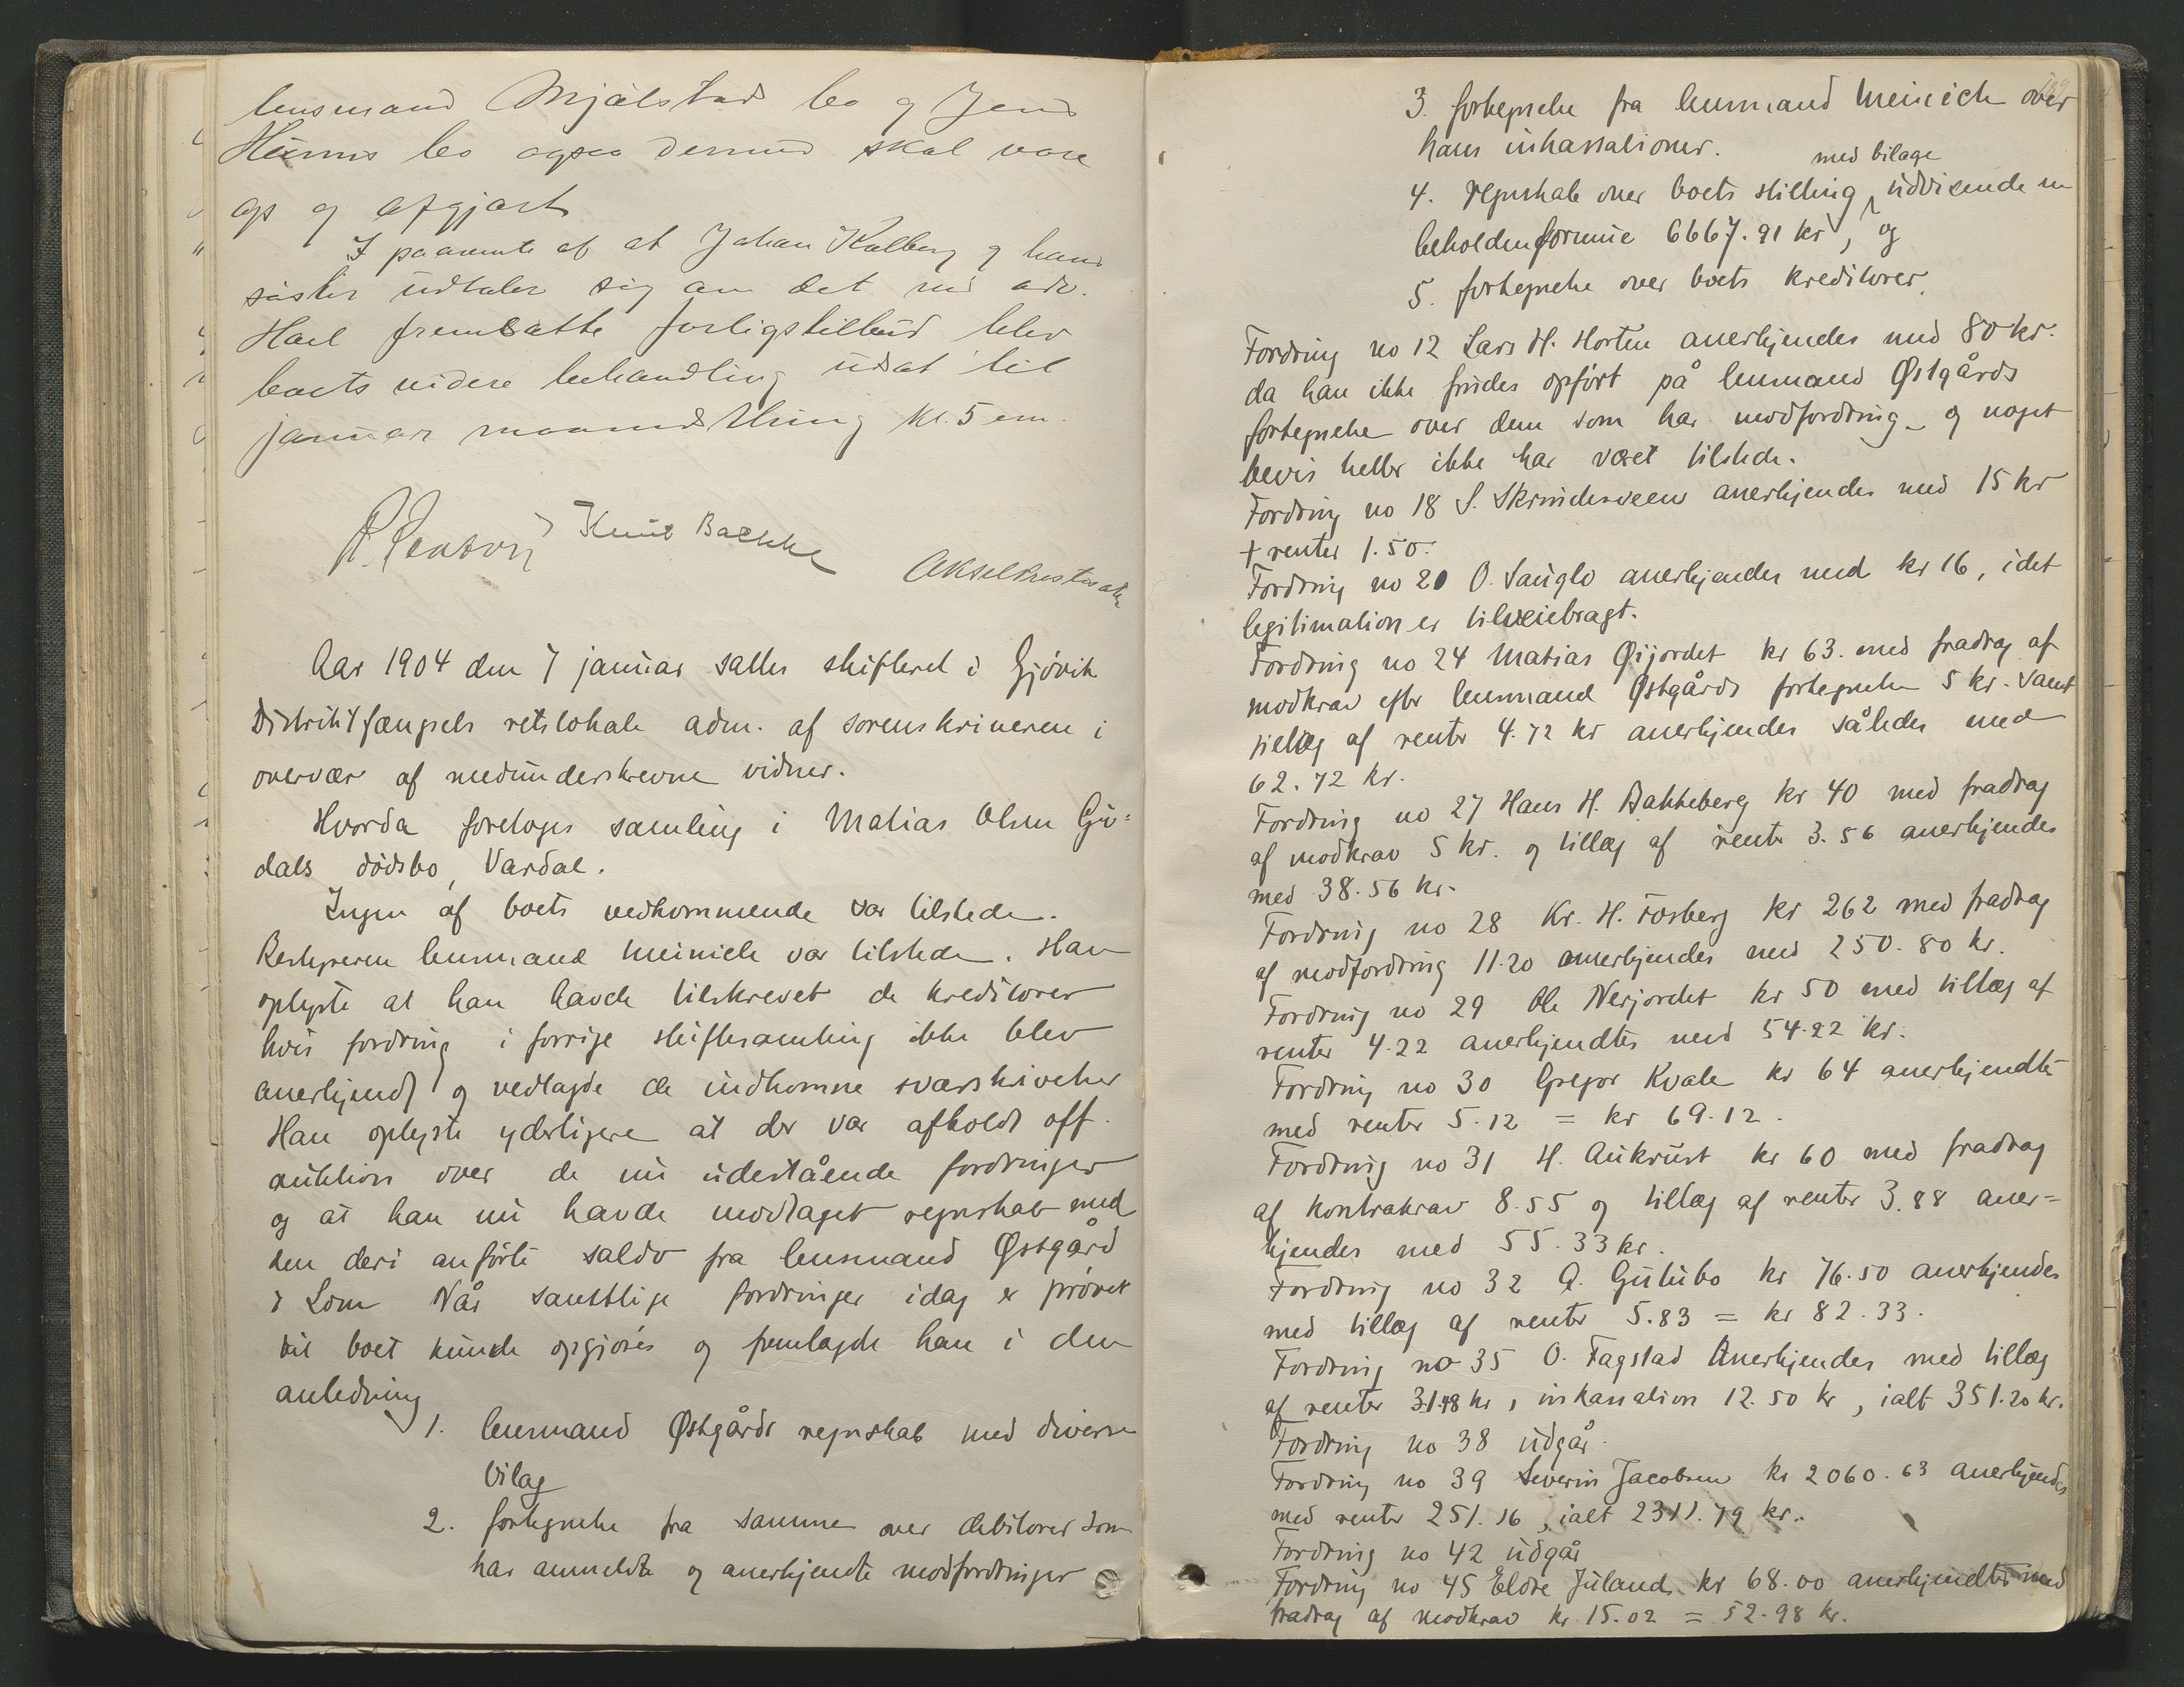 lensmand Mjølstad bo og Jens
bo ogsaa dermed skal være
op og afgjort
I paavente af at Johan Kalberg og hans
søster udtaler sig om det nu adv.
Hael fremsatte forligstilbud blev
boets videre behandling udsat til
januar maanedsthing kl. 5 em.
Knut Bakke
Aar 1904 den 7 januar sattes skifteret i Gjøvik
Distriktsfængsels retslokale adm. af sorenskriveren i
overvær af medunderskrevne vidner.
Hvorda foretoges samling i Matias Olsen Gjø-
dals dødsbo, Vardal.
Ingen af boets vedkommende var tilstede.
Bestyreren lensmand Meinich var tilstede. Han
oplyste at han havde tilskrevet de kreditorer
hvis fordring i forrige skiftesamling ikke blev
anerkjendt og vedlagde de indkomne svarskrivelser
Han oplyste yderligere at der var afholdt off.
auktion over de nu udestående fordringer
og at han nu havde modtaget regnskab med
den deri anførte saldo fra lensmand Østgård
i Lom Når samtlige fordringer idag er prøvet
vil boet kunde opgjøres og fremlagde han i den
anledning
1. lensmand Østgårds regnskab med diverse
bilag
2. fortegnelse fra samme over debitorer som
har anmeldte og anerkjendte modfordringer
3. fortegnelse fra lensmand Meinich over
hans inkassationer.
med bilage
4. regnskab over boets stilling, udvisende en
beholden formue 6667.91 kr, og
5. fortegnelse over boets kreditorer.
Fordring no 12 Lars H. Horten anerkjendes med 80 kr.
da han ikke findes opført på lensmand Østgårds
fortegnelse over dem som har modfordring - og noget
bevis heller ikke har været tilstede.
Fordring no 18 S. Skrindesveen anerkjendes med 15 kr
+ renter 1.50.
Fordring no 20 O. Sauglo anerkjendes med kr 16, idet
legitimation er tilveiebragt.
Fordring no 24 Matias Øijordet kr 63. med fradrag af
modkrav efter lensmand Østgårds fortegnelse 5 kr. samt
tillæg af renter 4.72 kr anerkjendes således med
62.72 kr.
Fordring no 27 Hans H. Bakkeberg kr 40 med fradrag
af modkrav 5 kr. og tillæg af rente 3.56 anerkjendes
med 38.56 kr.
Fordring no 28 Kr. H. Fosberg kr 262 med fradrag
af modfordring 11.20 anerkjendes med 250.80 kr.
Fordring no 29 Ole Nerjordet kr 50 med tillæg af
renter 4.22 anerkjendtes med 54.22 kr.
Fordring no 30 Gregor Kvale kr 64 anerkjendtes
med renter 5.12 = kr 69.12.
Fordring no 31 H. Aukrust kr 60 med fradrag
af kontrakrav 8.55 og tillæg af renter 3.88 aner=
kjendes med 55.33 kr.
Fordring no 32 A. Gulubo kr 76.50 anerkjendes
med tillæg af renter 5.83 = kr 82.33.
Fordring no 35 O. Fagstad Anerkjendes med tillæg
af renter 31.48 kr, inkassation 12.50 kr, ialt 351.20 kr.
Fordring no 38 udgår.
Fordring no 39 Severin Jacobsen kr 2060.63 anerkjendes
med renter 251.16, ialt 2311.79 kr.
Fordring no 42 udgår
Fordring no 45 Eldre Juland kr 68.00 anerkjendtes med
fradrag af modkrav kr. 15.02 = 52.98 kr.